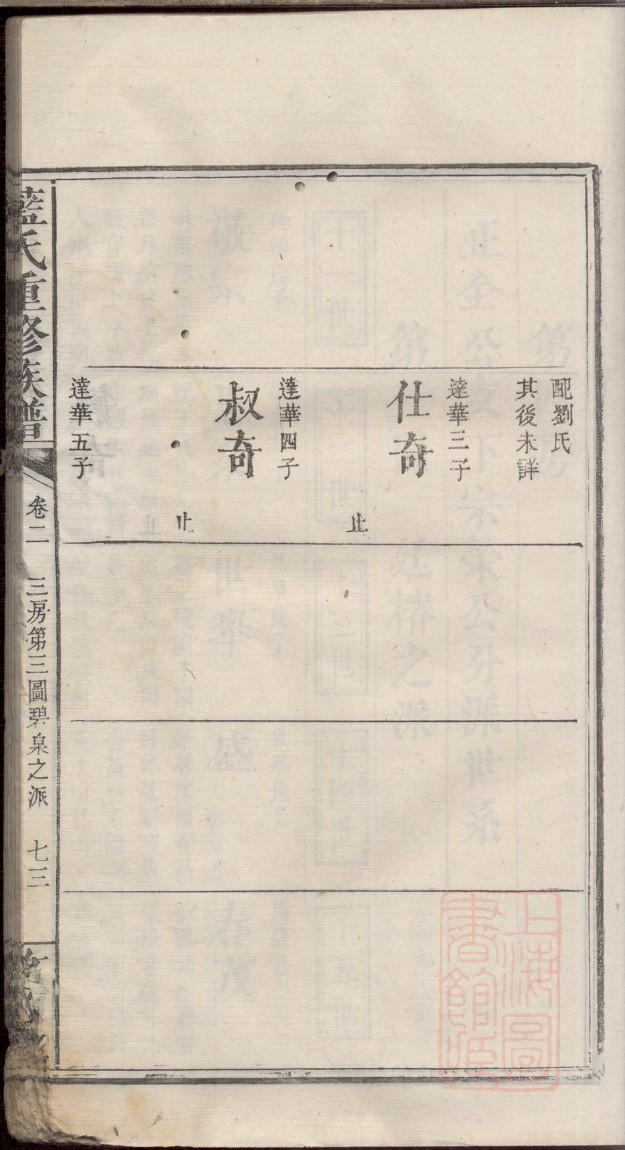 配劉氏
其後未詳
達華三子
仕奇
止
達華四子
叔奇
止
達華五子
藍氏重修族譜
卷二
三房第三圖碧泉之派
七三
上海圖書館藏